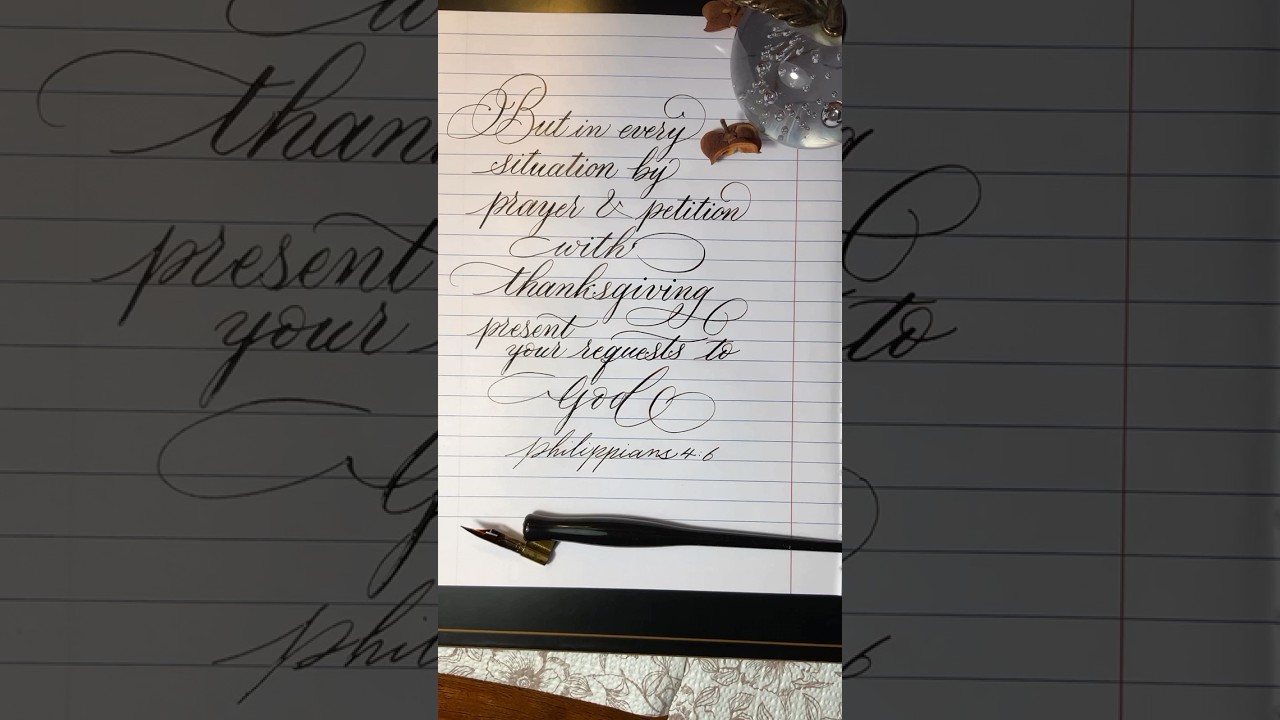 But in every
situation by
prayer & petition
with
thanksgiving
present
your requests to
God
philippians 4.6